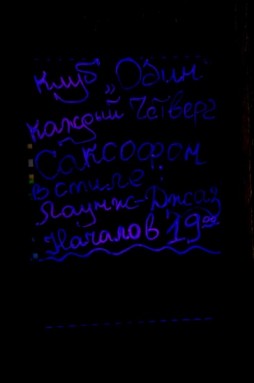 Клуб „Один"
каждый Четверг
Саксофон
в стиле:
Лаунж-Джаз
Начало в 19⁰⁰